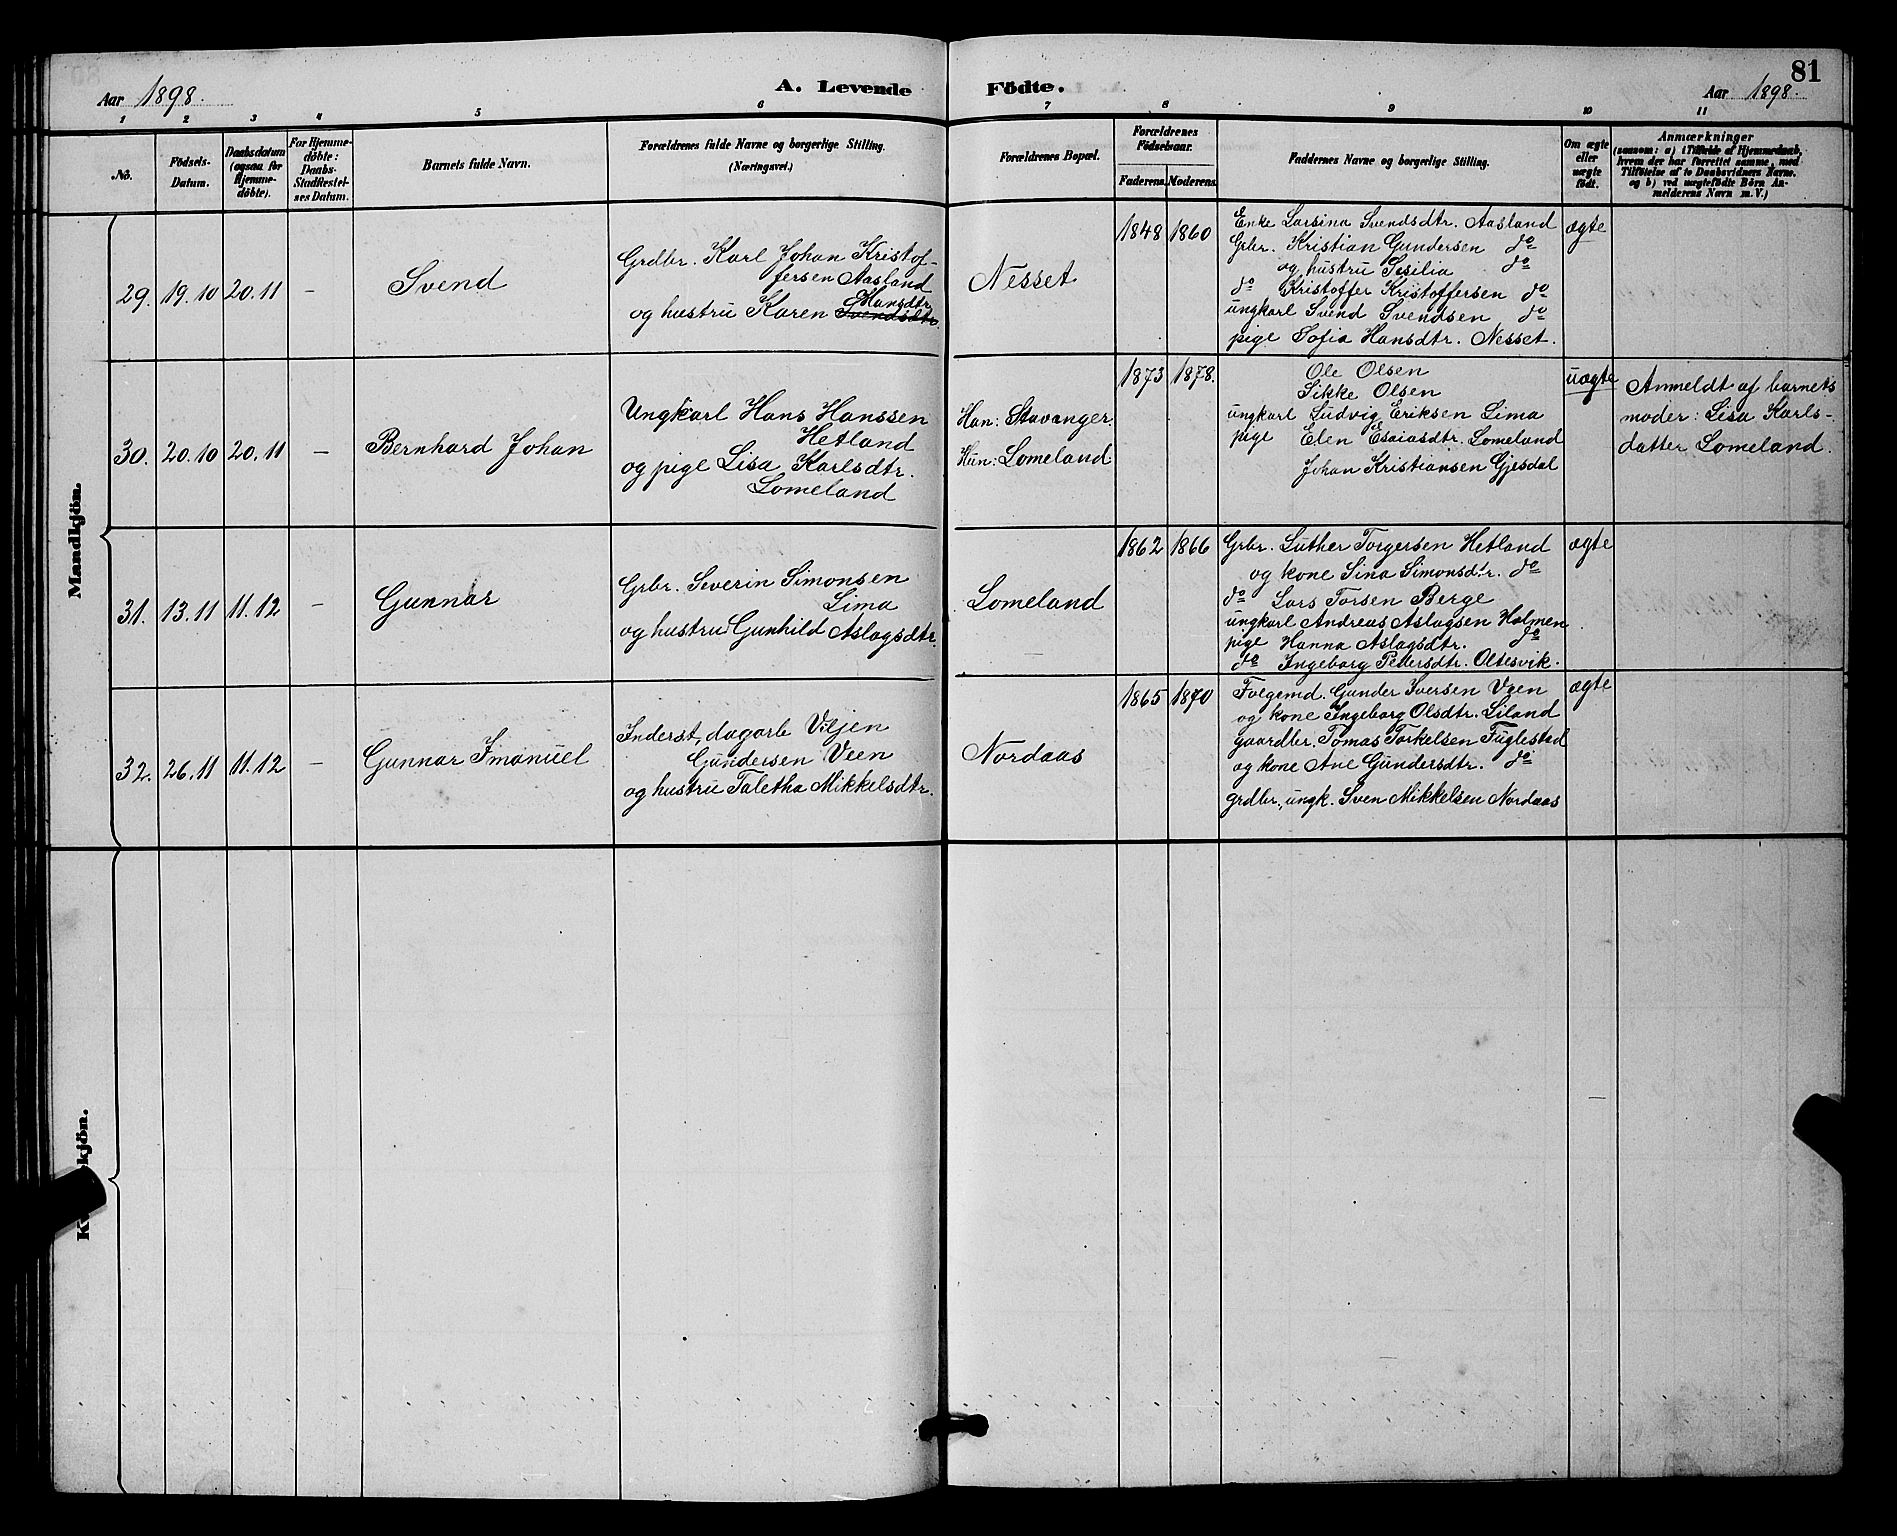 81
Aar 1898.
A. Levende
Födte.
Aar 1898.
1 2 3 4 5 6 7 8 9 10 11
No.
Födsels-
Datum.
Daabsdatum
(ogsaa for
Hjemme-
döbte).
For Hjemme-
döbte:
Daabs-
Stadfæstel-
ses Datum.
Barnets fulde Navn.
Forældrenes fulde Navne og borgerlige Stilling.
(Næringsvei.)
Forældrenes Bopæl.
Forældrenes
Födselsaar.
Faderens. Moderens.
Faddernes Navne og borgerlige Stilling.
Om ægte
eller
uægte
födt.
Anmærkninger
(saasom: a) i Tilfælde af Hjemmedaab,
hvem der har forrettet samme, med
Tilföielse af to Daabsvidners Navne,
og b) ved uægtefödte Börn An-
melderens Navn m. V.)
Mandkjön.
29. 19.10 20.11 –
Svend
Grdbr. Karl Johan Kristof-
fersen Aasland
Hansdtr.
og hustru Karen Svendsdtr.
Nesset
1848 1860
Enke Larsina Svendsdtr. Aasland
Grbr. Kristian Gundersen do
og hustru Sesilia do
do Kristoffer Kristoffersen do
ungkarl Svend Svendsen do
pige Sofia Hansdtr. Nesset.
ægte
30. 20.10 20.11 –
Bernhard Johan
Ungkarl Hans Hanssen
Hetland
og pige Lisa Karlsdtr.
Lomeland
Han: Stavanger.
Hun: Lomeland.
1873 1878.
Ole Olsen
Sikke Olsen
ungkarl Ludvig Eriksen Lima
pige Elen Esaiasdtr. Lomeland
Johan Kristiansen Gjesdal
uægte
Anmeldt af barnets
moder: Lisa Karls-
datter Lomeland.
31. 13.11 11.12 –
Gunnar
Grbr. Severin Simonsen
Lima
og hustru Gunhild Aslagsdtr.
Lomeland
1862 1866
Grbr. Luther Torgersen Hetland
og kone Sina Simonsdtr. do
do Lars Torsen Berge
ungkarl Andreas Aslagsen Holmen
pige Hanna Aslagsdtr. do
do Ingeborg Pedersdtr. Oltesvik.
ægte
32. 26.11 11.12 –
Gunnar Imanuel
Inderst, dagarb. Viljen
Gundersen Veen
og hustru Taletha Mikkelsdtr.
Nordaas
1865 1870
Folgemd. Gunder Iversen Veen
og kone Ingeborg Olsdtr. Liland
gaardbr. Tomas Torkelsen Fuglestad
og kone Ane Gundersdtr. do
grdbr., ungk. Sven Mikkelsen Nordaas
ægte
kjön.